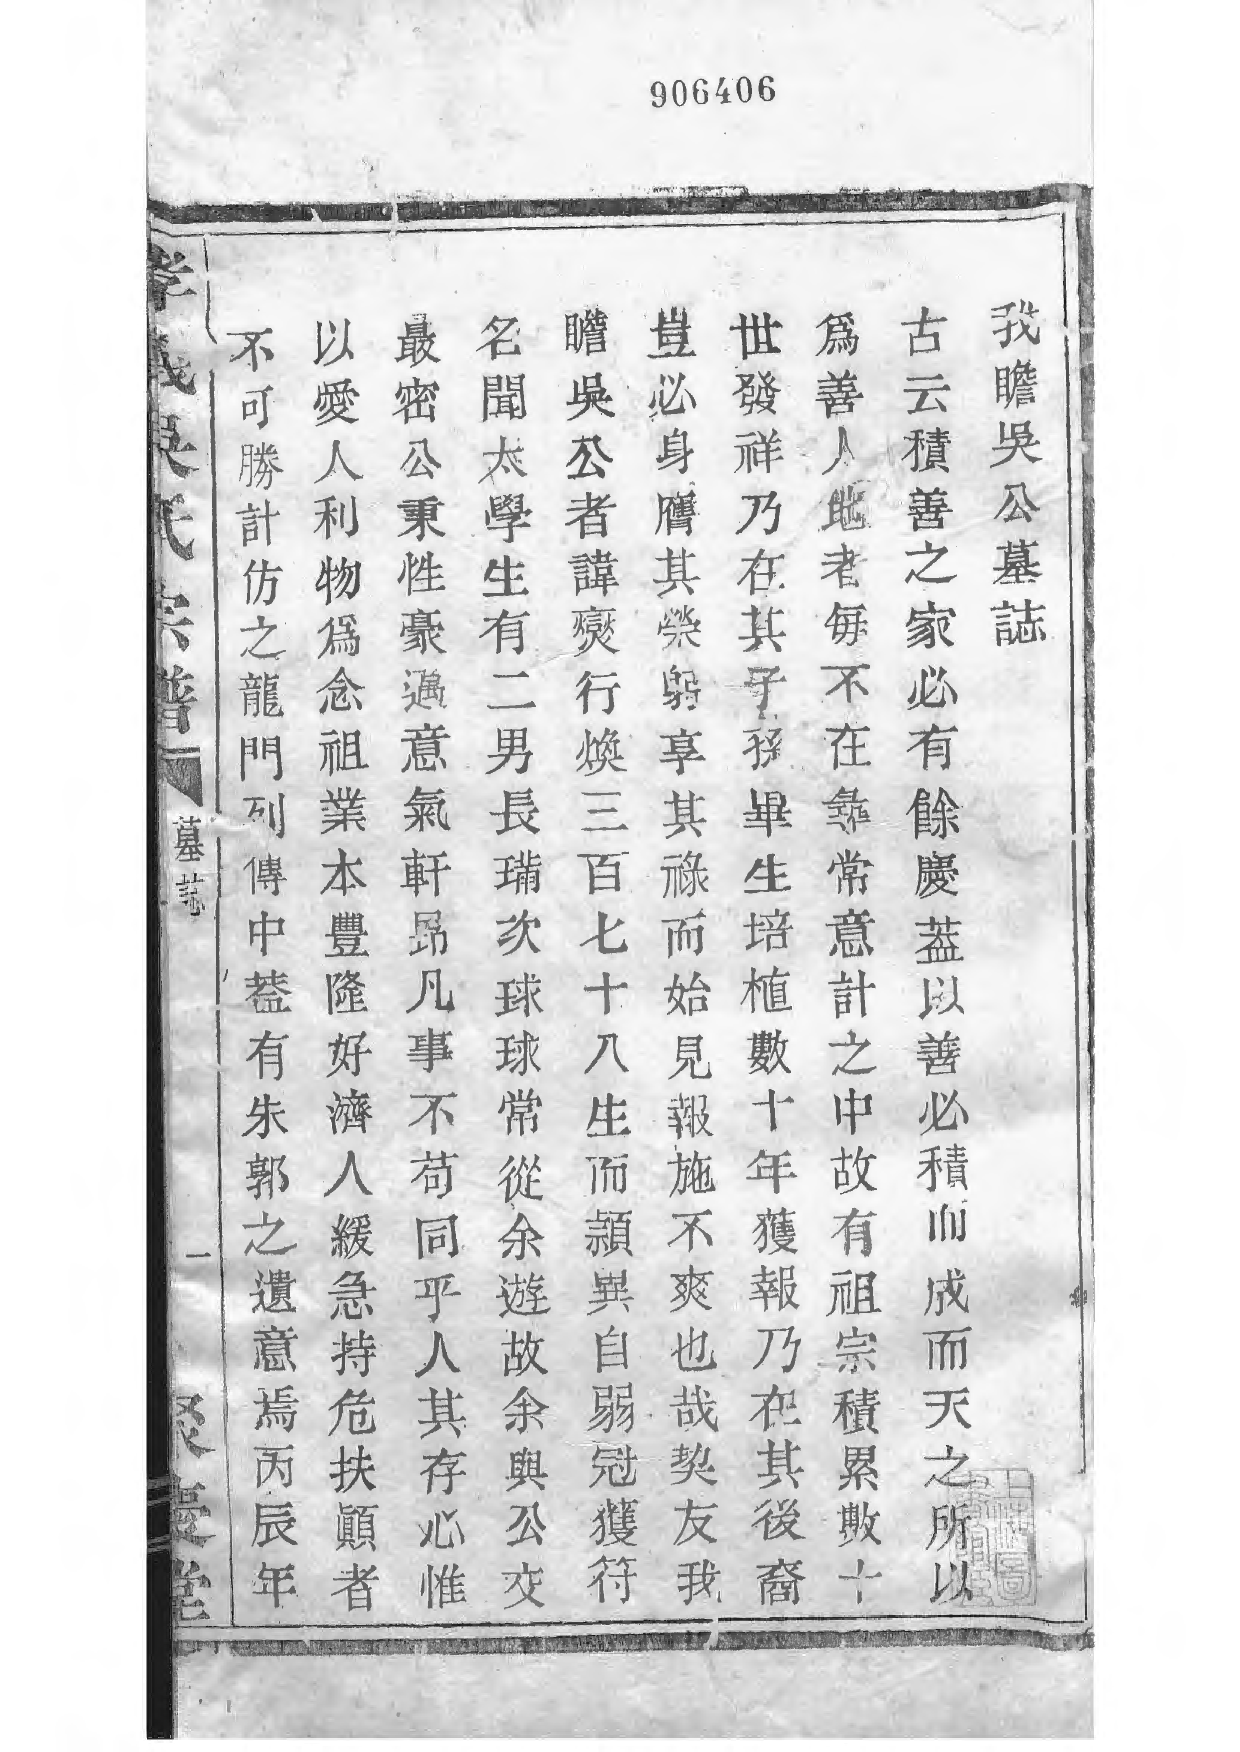 906406
我瞻吳公墓誌
古云積善之家必有餘慶葢以善必積而成而天之所以
爲善人地者每不在彝常意計之中故有祖宗積累數十
世發祥乃在其子孫畢生培植數十年獲報乃在其後裔
豈必身膺其榮躬享其祿而始見報施不爽也哉契友我
瞻吳公者諱爕行煥三百七十八生而頴異自弱冠獲符
名聞太學生有二男長璊次球球常從余遊故余與公交
最密公秉性豪邁意氣軒昻凡事不苟同乎人其存心惟
以愛人利物爲念祖業本豐隆好濟人緩急持危扶顚者
不可勝計仿之龍門列傳中葢有朱郭之遺意焉丙辰年
孝義吳氏宗譜
墓誌
一
聚慶堂